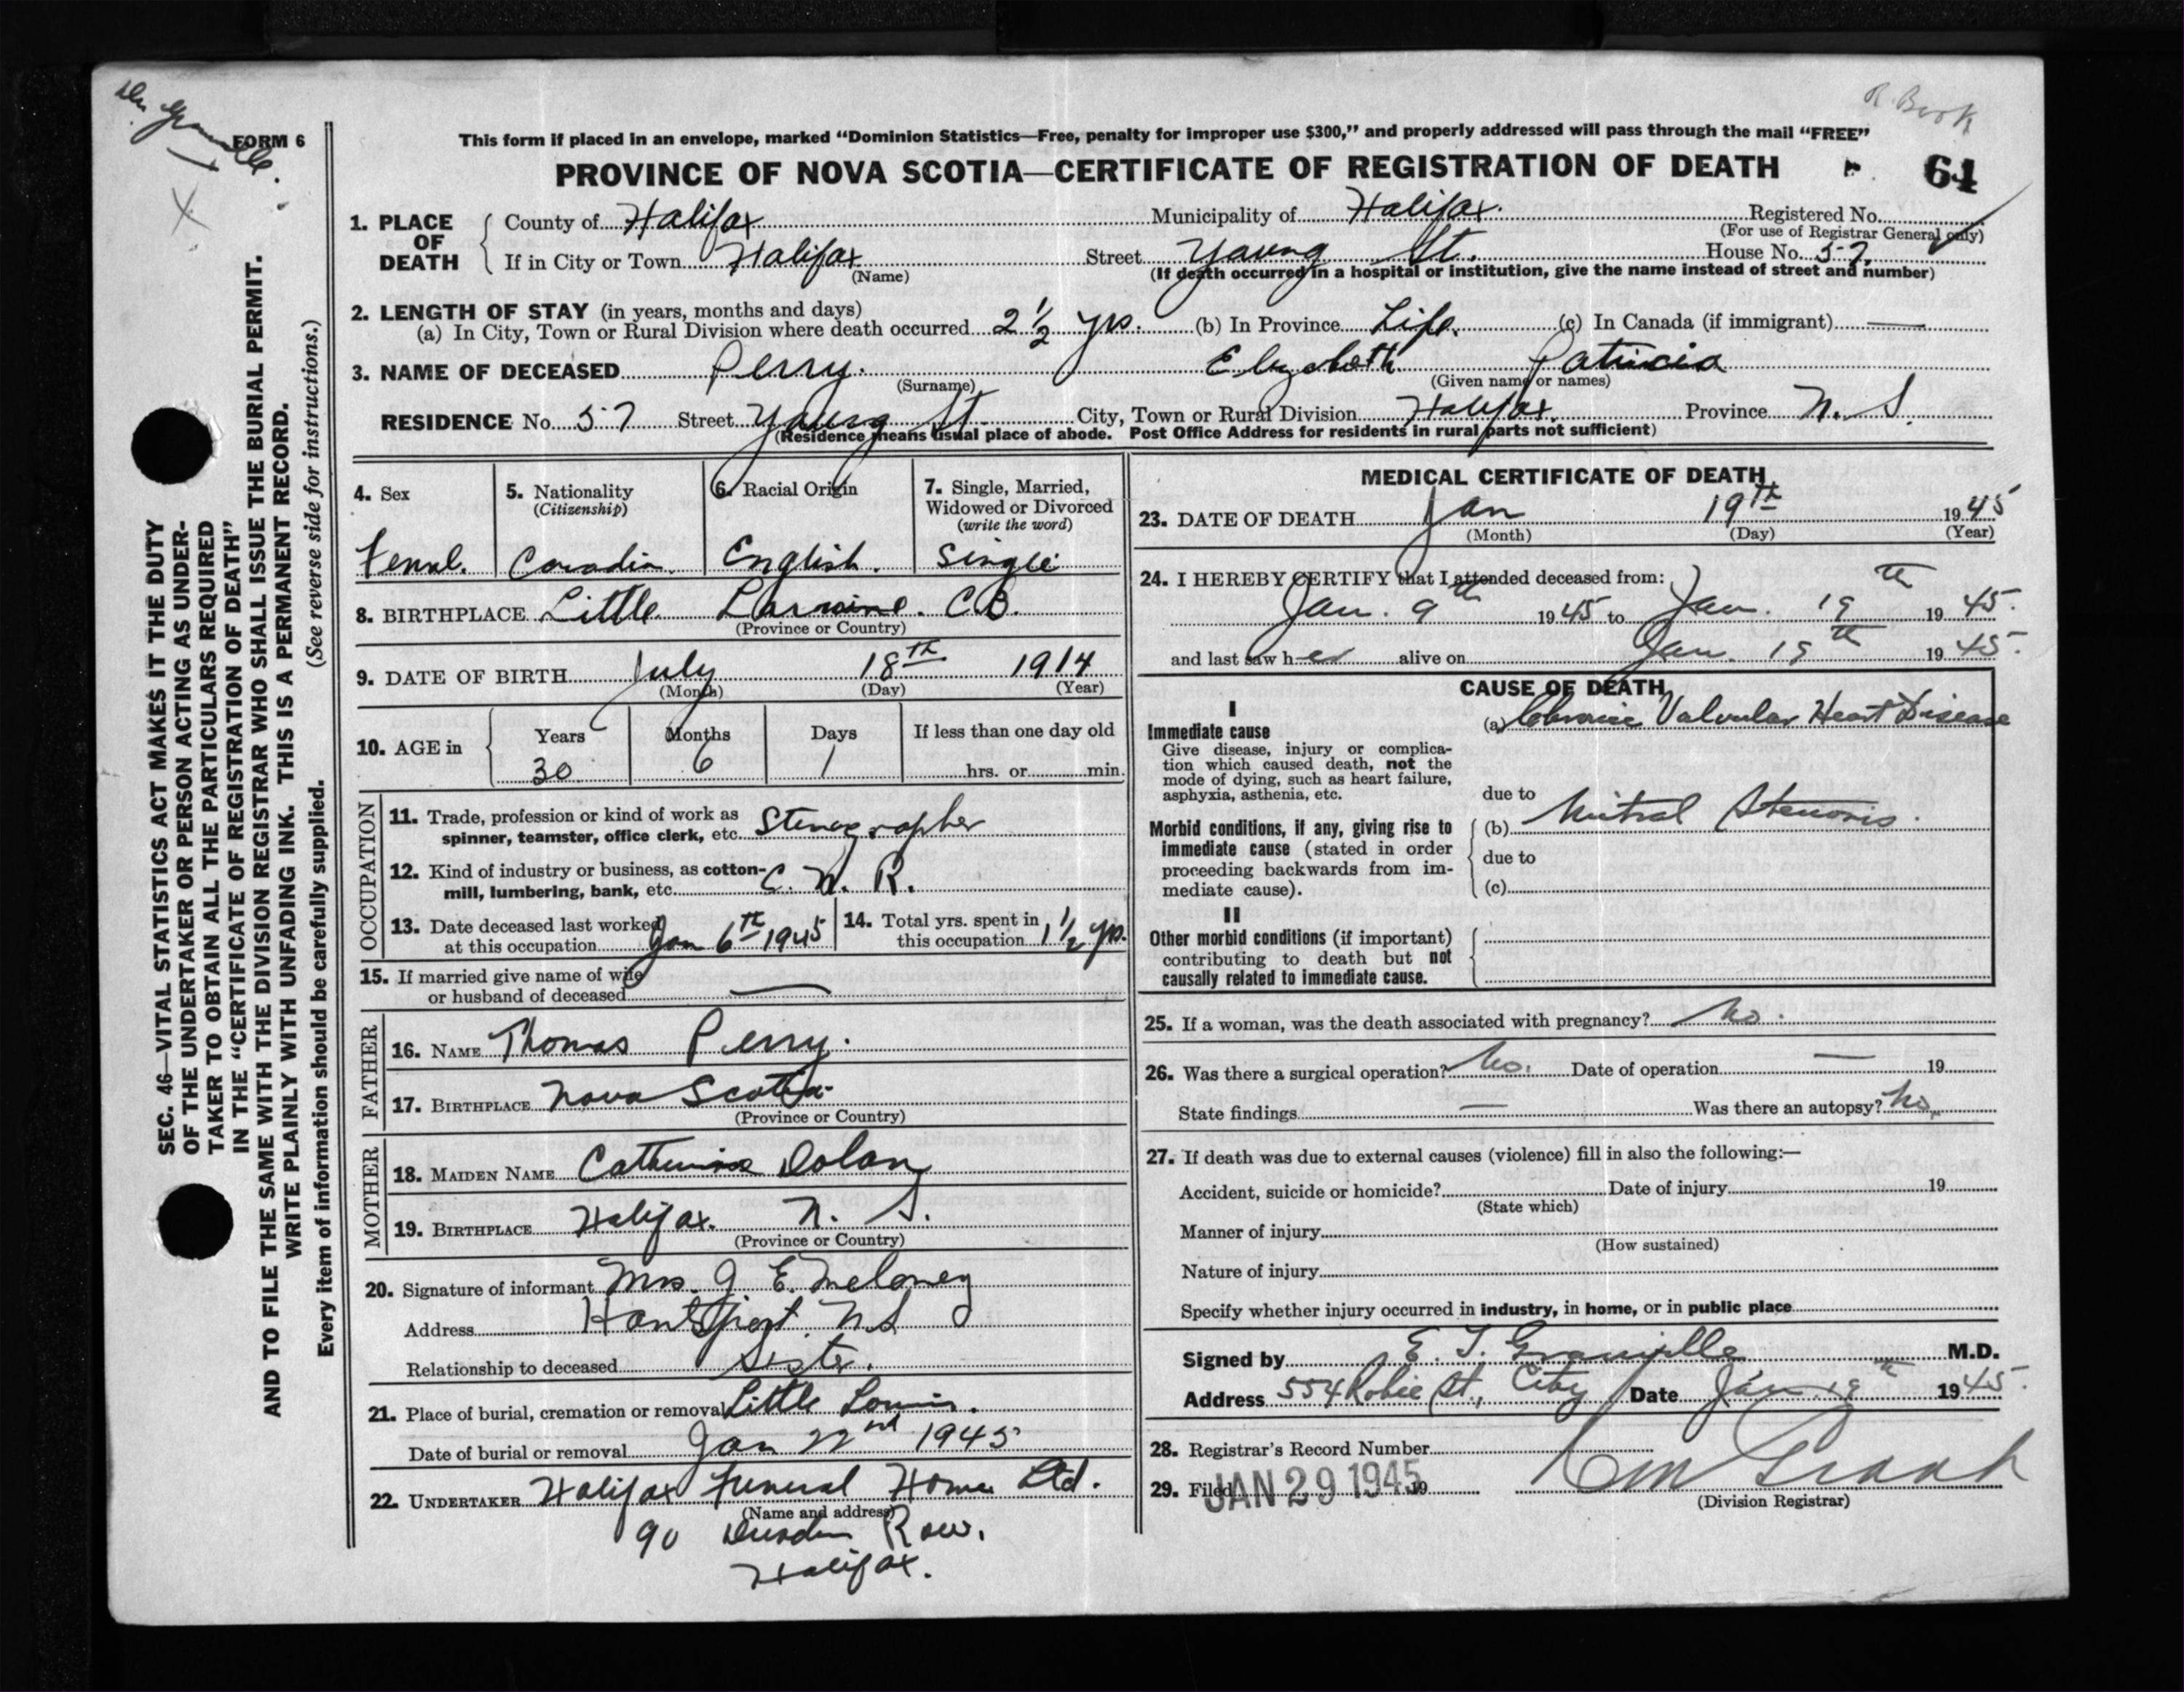 R. Book
FORM 6
This form if placed in an envelope, marked "Dominion Statistics—Free, penalty for improper use $300," and properly addressed will pass through the mail "FREE"
PROVINCE OF NOVA SCOTIA—CERTIFICATE OF REGISTRATION OF DEATH
64
1. PLACE OF DEATH
County of Halifax Municipality of Halifax. Registered No.
(For use of Registrar General only)
If in City or Town Halifax Street Young St. House No. 57.
(Name) (If death occurred in a hospital or institution, give the name instead of street and number)
2. LENGTH OF STAY (in years, months and days)
(a) In City, Town or Rural Division where death occurred 2 1/2 yrs. (b) In Province Life. (c) In Canada (if immigrant) —
3. NAME OF DECEASED Perry. Elizabeth Patricia
(Surname) (Given name or names)
RESIDENCE No. 57 Street Young St. City, Town or Rural Division Halifax. Province N. S.
(Residence means usual place of abode. Post Office Address for residents in rural parts not sufficient)
4. Sex 5. Nationality 6. Racial Origin 7. Single, Married,
(Citizenship) Widowed or Divorced
(write the word)
Femal. Canadian. English. Single
8. BIRTHPLACE Little Lorraine. C.B.
(Province or Country)
9. DATE OF BIRTH July 18th 1914
(Month) (Day) (Year)
10. AGE in Years Months Days If less than one day old
30 6 1 hrs. or min.
OCCUPATION
11. Trade, profession or kind of work as
spinner, teamster, office clerk, etc. Stenographer
12. Kind of industry or business, as cotton-
mill, lumbering, bank, etc. C. N. R.
13. Date deceased last worked
at this occupation Jan 6th 1945
14. Total yrs. spent in
this occupation 1 1/2 yrs.
15. If married give name of wife
or husband of deceased —
FATHER
16. NAME Thomas Perry.
17. BIRTHPLACE Nova Scotia
(Province or Country)
MOTHER
18. MAIDEN NAME Catherine Dolan
19. BIRTHPLACE Halifax. N. S.
(Province or Country)
20. Signature of informant Mrs. J E. Meloney
Address Hantsport N S
Relationship to deceased Sister.
21. Place of burial, cremation or removal Little
Date of burial or removal Jan 22nd 1945
22. UNDERTAKER Halifax Funeral Home Ltd.
(Name and address)
90 Row.
Halifax.
MEDICAL CERTIFICATE OF DEATH
23. DATE OF DEATH Jan 19th 1945
(Month) (Day) (Year)
24. I HEREBY CERTIFY that I attended deceased from:
Jan. 9th 1945 to Jan. 19th 1945.
and last saw her alive on Jan. 19th 1945.
CAUSE OF DEATH
I
Immediate cause
Give disease, injury or complica-
tion which caused death, not the
mode of dying, such as heart failure,
asphyxia, asthenia, etc.
(a) Chronic Valvular Heart Disease
due to
Morbid conditions, if any, giving rise to
immediate cause (stated in order
proceeding backwards from im-
mediate cause).
(b) Mitral Stenosis.
due to
(c)
II
Other morbid conditions (if important)
contributing to death but not
causally related to immediate cause.
25. If a woman, was the death associated with pregnancy? No.
26. Was there a surgical operation? No. Date of operation — 19
State findings — Was there an autopsy? No.
27. If death was due to external causes (violence) fill in also the following:—
Accident, suicide or homicide? Date of injury 19
(State which)
Manner of injury
(How sustained)
Nature of injury
Specify whether injury occurred in industry, in home, or in public place
Signed by E. F. Granville M.D.
Address 554 Robie St., City Date Jan 19th 1945.
28. Registrar's Record Number
29. Filed JAN 29 1945 19
(Division Registrar)
SEC. 46—VITAL STATISTICS ACT MAKES IT THE DUTY
OF THE UNDERTAKER OR PERSON ACTING AS UNDER-
TAKER TO OBTAIN ALL THE PARTICULARS REQUIRED
IN THE "CERTIFICATE OF REGISTRATION OF DEATH"
AND TO FILE THE SAME WITH THE DIVISION REGISTRAR WHO SHALL ISSUE THE BURIAL PERMIT.
WRITE PLAINLY WITH UNFADING INK. THIS IS A PERMANENT RECORD.
Every item of information should be carefully supplied. (See reverse side for instructions.)